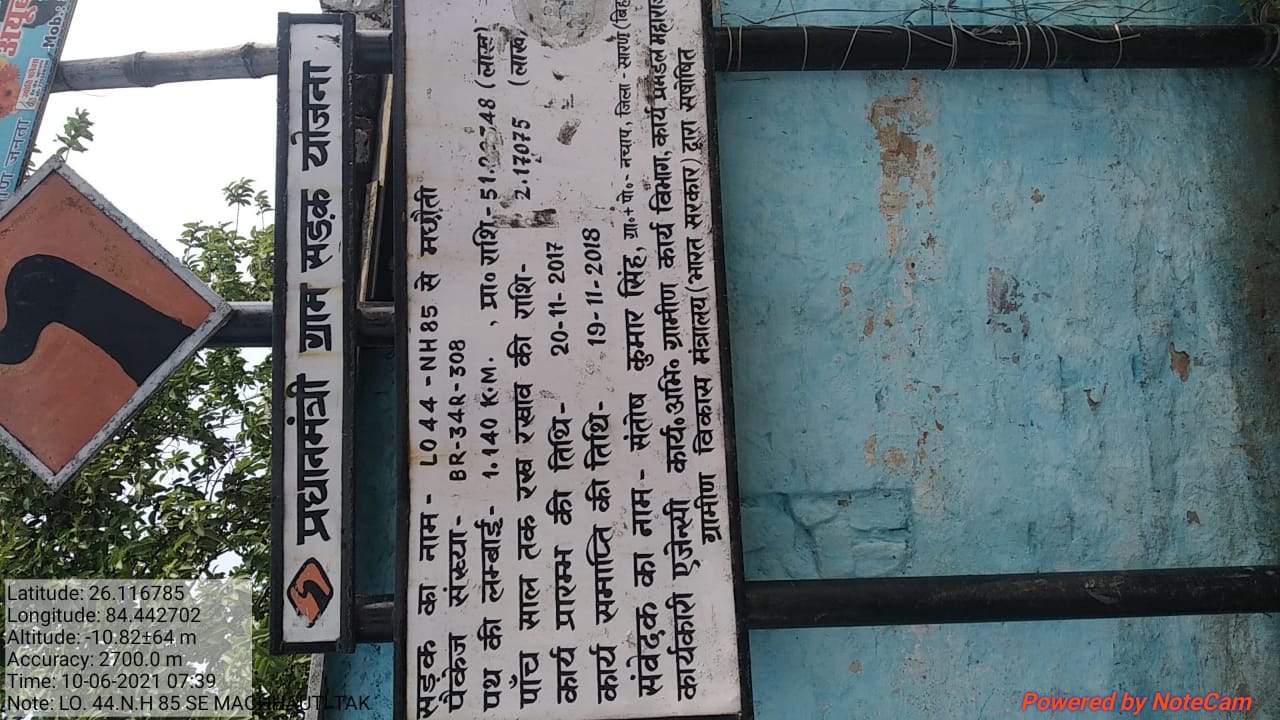 प्रधानमंत्री ग्राम सड़क योजना
सड़क का नाम - L044-NH85 से मछौती
पैकेज संख्या- BR-34R-308
पथ की लम्बाई- 1.140 K.M. , प्रा० राशि- (लाख)
पाँच साल तक रख रखाव की राशि- 2.17075 (लाख)
कार्य प्रारम्भ की तिथि- 20-11-2017
कार्य समाप्ति की तिथि- 19-11-2018
संवेदक का नाम - संतोष कुमार सिंह, ग्रा०+पो०- नचाप, जिला - सारण (बिह
कार्यकारी एजेन्सी कार्य०अभि० ग्रामीण कार्य विभाग, कार्य प्रमंडल महाराज
ग्रामीण विकास मंत्रालय (भारत सरकार) द्वारा सपोषित
Mob
जनता
Latitude: 26.116785
Longitude: 84.442702
Altitude: -10.82±64 m
Accuracy: 2700.0 m
Time: 10-06-2021 07:39
Note: LO. 44.N.H 85 SE MACHHAUTI TAK
Powered by NoteCam